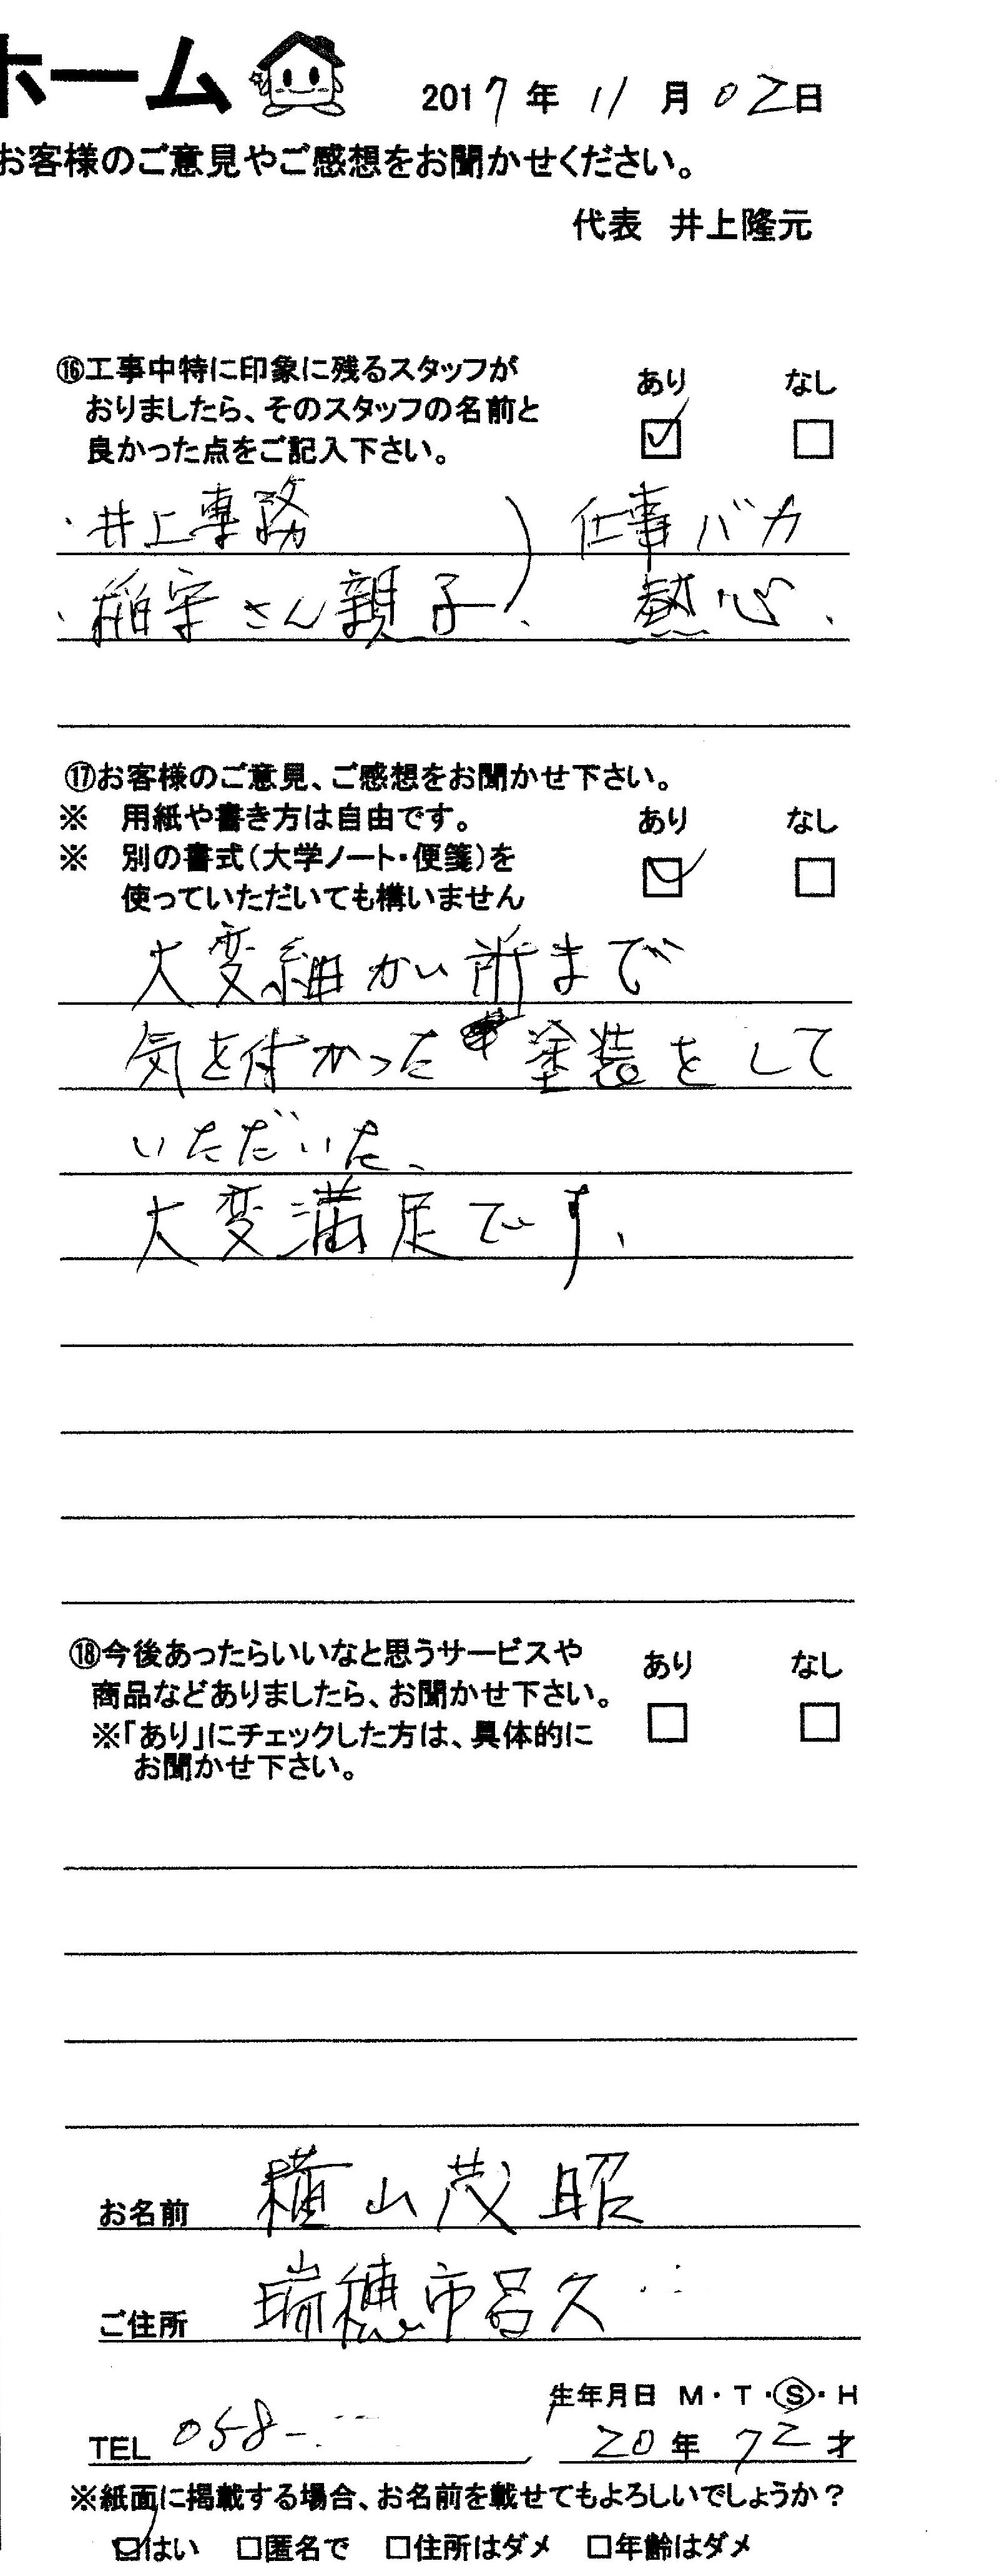 ホーム
2017年 11月 02日
お客様のご意見やご感想をお聞かせください。
代表 井上隆元
⑯工事中特に印象に残るスタッフが
おりましたら、そのスタッフの名前と
良かった点をご記入下さい。
あり なし
・井上専務 ) 仕事バカ
・稲守さん親子、 熱心、
⑰お客様のご意見、ご感想をお聞かせ下さい。
※ 用紙や書き方は自由です。
※ 別の書式(大学ノート・便箋)を
使っていただいても構いません
あり なし
大変細かい所まで
気を付かった塗装をして
いただいた、
大変満足です、
⑱今後あったらいいなと思うサービスや
商品などありましたら、お聞かせ下さい。
※「あり」にチェックした方は、具体的に
お聞かせ下さい。
あり なし
お名前 横山茂昭
ご住所 瑞穂市呂久
生年月日 M・T・S・H
TEL 058- 20年 72才
※紙面に掲載する場合、お名前を載せてもよろしいでしょうか?
□はい □匿名で □住所はダメ □年齢はダメ